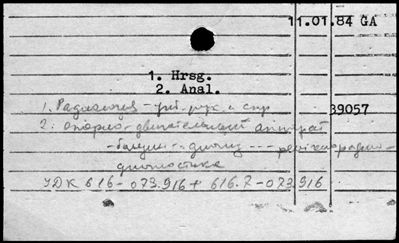 11.01.84 GA
1. Hrsg.
2. Anal.
1. Радиология - уч. рук. и спр
39057
2. опорно-двигательный аппарат
- болезни -- диагн. --- рентгенорадио-
диагностика
УДК 616-073.916 + 616.7-073.916